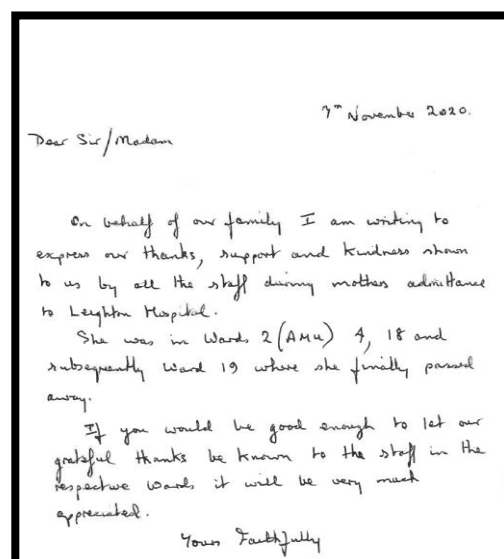 7th November 2020.
Dear Sir/Madam
On behalf of our family I am writing to
express our thanks, support and kindness shown
to us by all the staff during mothers admittance
to Leighton Hospital.
She was in Wards 2 (AMU) 4, 18 and
subsequently Ward 19 where she finally passed
away.
If you would be good enough to let our
grateful thanks be known to the staff in the
respective wards it will be very much
appreciated.
Yours Faithfully